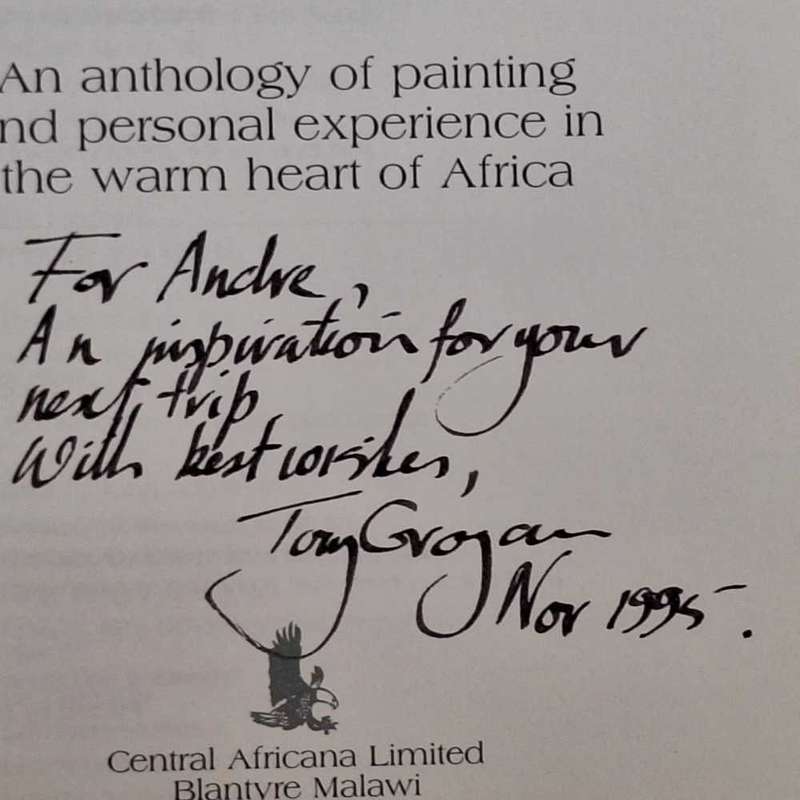 An anthology of painting
nd personal experience in
the warm heart of Africa
For Andre,
An inspiration for your
next trip
With best wishes,
Tony Grogan
Nov 1995.
Central Africana Limited
Blantyre Malawi